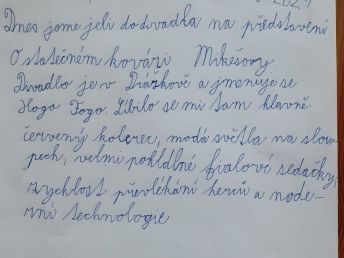 2024
Dnes jsme jeli do divadla na představení
O statečném kováři Mikešovy.
Divadlo je v Dražkově a jmenuje se
Hogo Fogo. Líbilo se mi tam hlavně
červený koberec, modá světla na slou-
pech, velmi pohldlné fialové sedačky,
rychlost převlékání herců a mode-
rní technologie